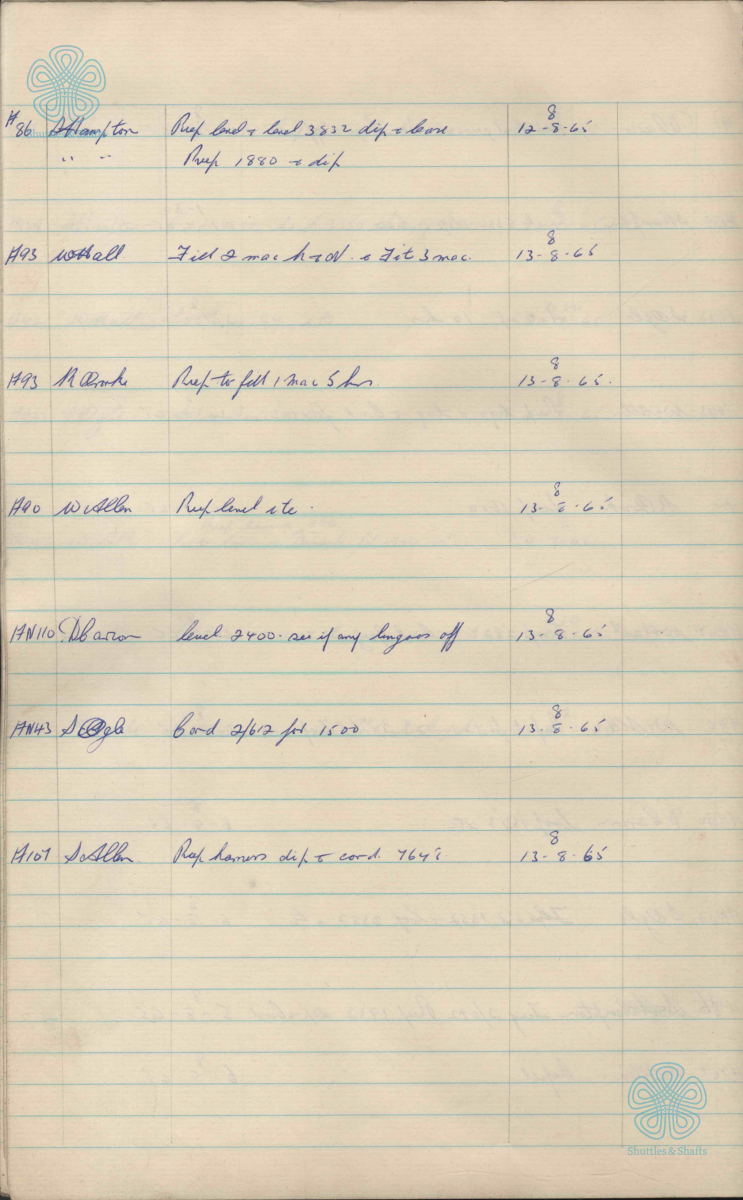 #86 S Hampton Rep level & level 3832 dip & leave 12-8-65
" " Rep 1880 & dip
A93 W Hall Fill 2 mac & Fit 3 mac. 13-8-65
A93 R Rep to fill 1 mac 5 hrs. 13-8-65.
A90 W Allen Rep level etc. 13-8-65
AN110 level 2400. see if any lingoes off 13-8-65
AN43 S Ogle Cord 2/612 for 1500 13-8-65
A107 S Allen. Rep harness dip & cord. 13-8-65
Shuttles & Shafts